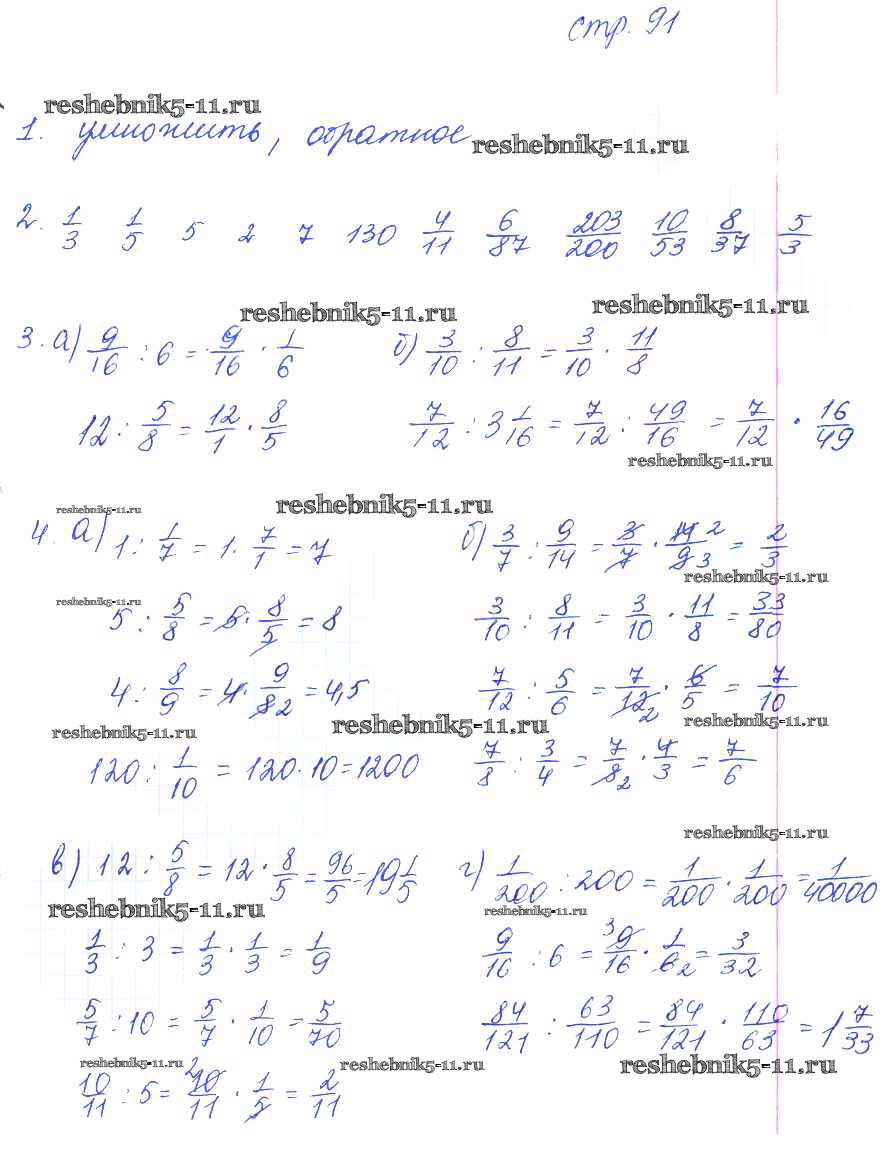 стр. 91
reshebnik5-11.ru
1. умножить, обратное reshebnik5-11.ru
2. 1/3 1/5 5 2 7 130 4/11 6/87 203/200 10/53 8/37 5/3
reshebnik5-11.ru reshebnik5-11.ru
3. а) 9/16 : 6 = 9/16 · 1/6 б) 3/10 : 8/11 = 3/10 · 11/8
12 : 5/8 = 12/1 · 8/5 7/12 : 3 1/16 = 7/12 : 49/16 = 7/12 · 16/49
reshebnik5-11.ru
reshebnik5-11.ru reshebnik5-11.ru
4. а) 1 : 1/7 = 1 · 7/1 = 7 б) 3/7 : 9/14 = 3/7 · 14 2/9 3 = 2/3
reshebnik5-11.ru
reshebnik5-11.ru
5 : 5/8 = 5 · 8/5 = 8 3/10 : 8/11 = 3/10 · 11/8 = 33/80
4 : 8/9 = 4 · 9/8 2 = 4,5 7/12 : 5/6 = 7/12 2 · 6/5 = 7/10
reshebnik5-11.ru reshebnik5-11.ru reshebnik5-11.ru
120 : 1/10 = 120 · 10 = 1200 7/8 : 3/4 = 7/8 2 · 4/3 = 7/6
reshebnik5-11.ru
в) 12 : 5/8 = 12 · 8/5 = 96/5 = 19 1/5 г) 1/200 : 200 = 1/200 · 1/200 = 1/40000
reshebnik5-11.ru reshebnik5-11.ru
1/3 : 3 = 1/3 · 1/3 = 1/9 9/16 : 6 = 3 9/16 · 1/6 2 = 3/32
5/7 : 10 = 5/7 · 1/10 = 5/70 84/121 : 63/110 = 84/121 · 110/63 = 1 7/33
reshebnik5-11.ru reshebnik5-11.ru reshebnik5-11.ru
10/11 : 5 = 2 10/11 · 1/5 = 2/11